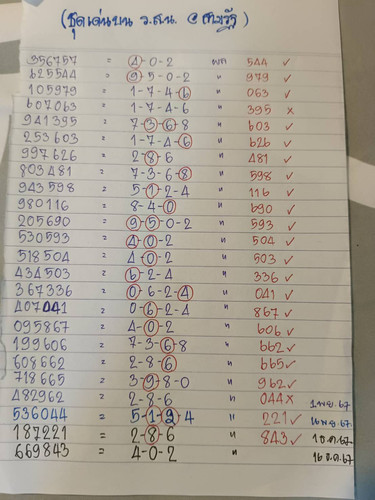 (ชุดเด่นบน ว.ส.น. @ศารวัฐ)
956757 = 4-0-2 ผล 544 ✓
625544 = 9-5-0-2 " 979 ✓
105979 = 1-7-4-6 " 063 ✓
607063 = 1-7-4-6 " 395 ×
941395 = 7-3-6-8 " 603 ✓
253603 = 1-7-4-6 " 626 ✓
997626 = 2-8-6 " 481 ✓
803481 = 7-3-6-8 " 598 ✓
943598 = 5-1-2-4 " 116 ✓
980116 = 8-4-0 " 690 ✓
205690 = 9-5-0-2 " 593 ✓
530593 = 4-0-2 " 504 ✓
518504 = 4-0-2 " 503 ✓
434503 = 6-2-4 " 336 ✓
367336 = 0-6-2-4 " 041 ✓
407041 = 0-6-2-4 " 867 ✓
095867 = 4-0-2 " 606 ✓
199606 = 7-3-6-8 " 662 ✓
608662 = 2-8-6 " 665 ✓
718665 = 3-9-8-0 " 962 ✓
482962 = 2-8-6 " 044 × 1 พ.ย. 67
536044 = 5-1-2-4 " 221 ✓ 16 พ.ย. 67
187221 = 2-8-6 " 843 ✓ 1 ธ.ค. 67
669843 = 4-0-2 " 16 ธ.ค. 67